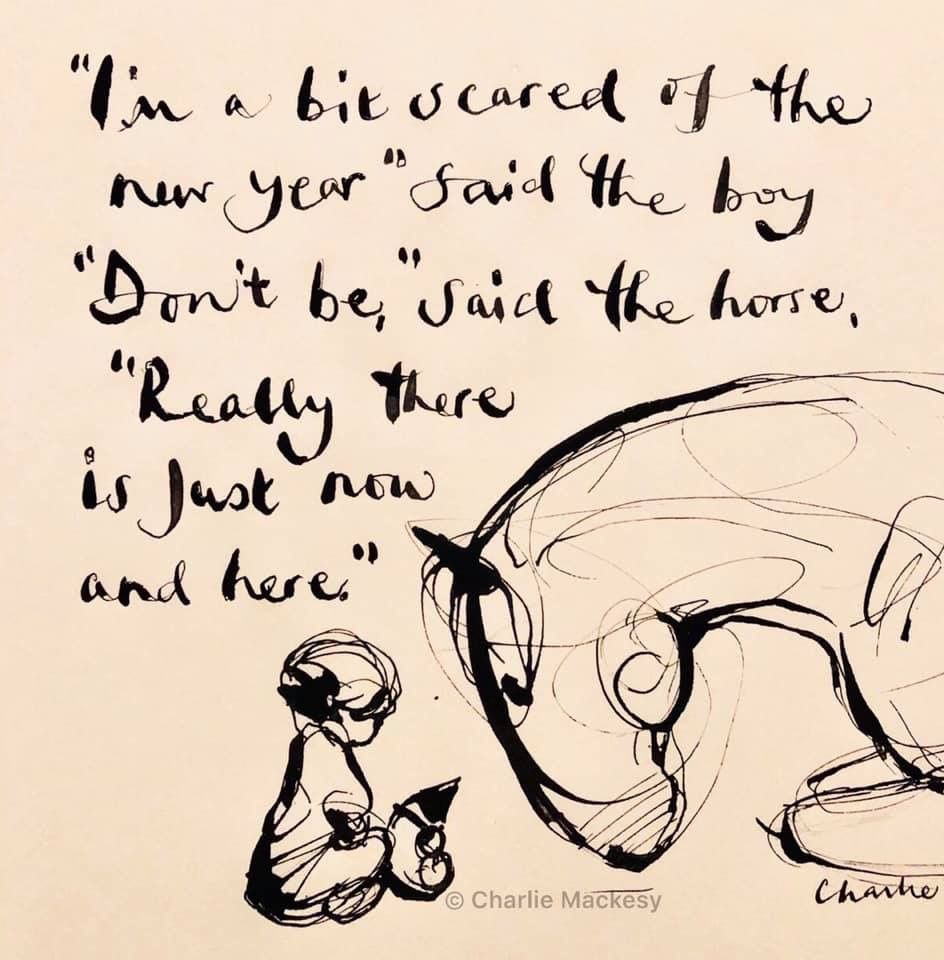 "I'm a bit scared of the
new year" said the boy
"Don't be," said the horse,
"Really there
is Just now
and here."
© Charlie Mackesy
Charlie